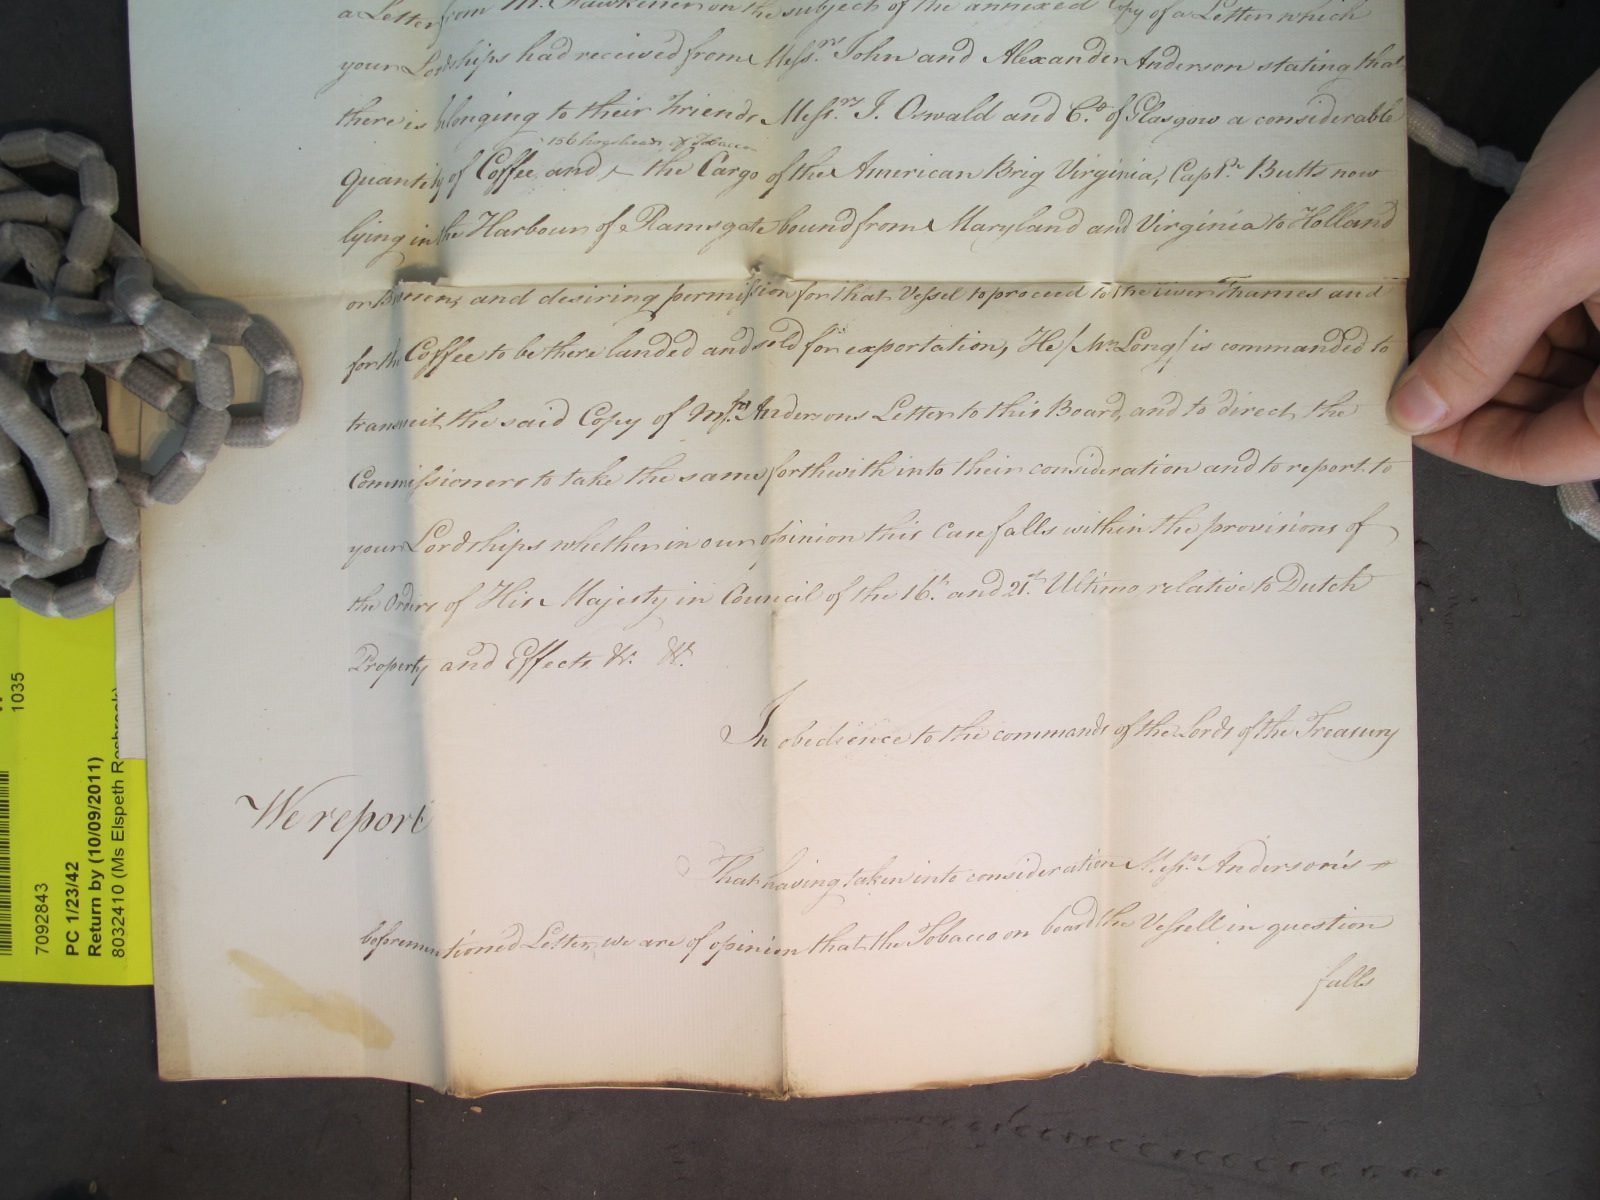 a Letter from Mr. Fawkener on the subject of the annexed Copy of a Letter which
your Lordships had received from Messrs. John and Alexander Anderson stating that
there is belonging to their Friends Messrs. J. Oswald and Co. of Glasgow a considerable
156 hogsheads of Tobacco
Quantity of Coffee and ^ the Cargo of the American Brig Virginia, Captn. Butts now
lying in the Harbour of Ramsgate bound from Maryland and Virginia to Holland
or Bremen, and desiring permission for that Vessel to proceed to the river Thames and
for the Coffee to be there landed and sold for exportation, He /Mr. Long/ is commanded to
transmit the said Copy of Messrs. Andersons Letter to this Board, and to direct the
Commissioners to take the same forthwith into their consideration and to report to
your Lordships whether in our opinion this Case falls within the provisions of
the Orders of His Majesty in Council of the 16th. and 21st. Ultimo relative to Dutch
Property and Effects &c. &c.
In obedience to the commands of the Lords of the Treasury
We report
That having taken into consideration Messrs. Anderson's
beforementioned Letter, we are of opinion that the Tobacco on board the Vessell in question
falls
1035
7092843
PC 1/23/42
Return by (10/09/2011)
8032410 (Ms Elspeth